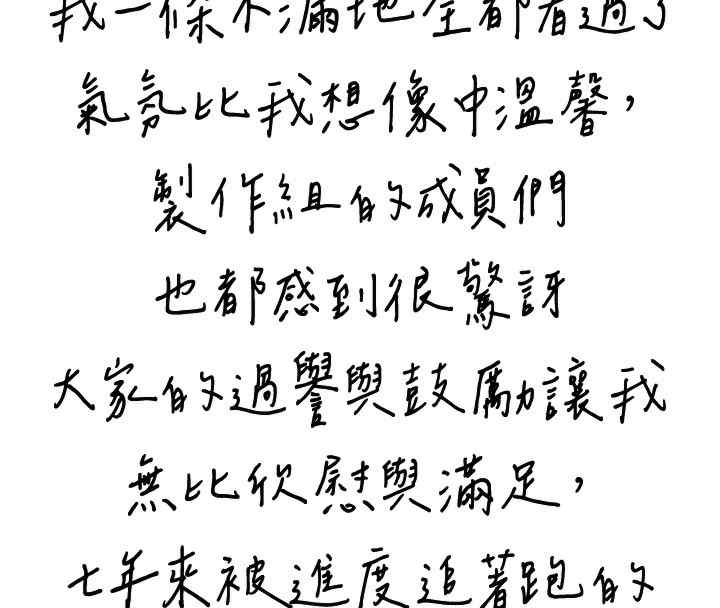 我一條不漏地全都看過了
氣氛比我想像中溫馨，
製作組的成員們
也都感到很驚訝
大家的過譽與鼓勵讓我
無比欣慰與滿足，
七年來被進度追著跑的